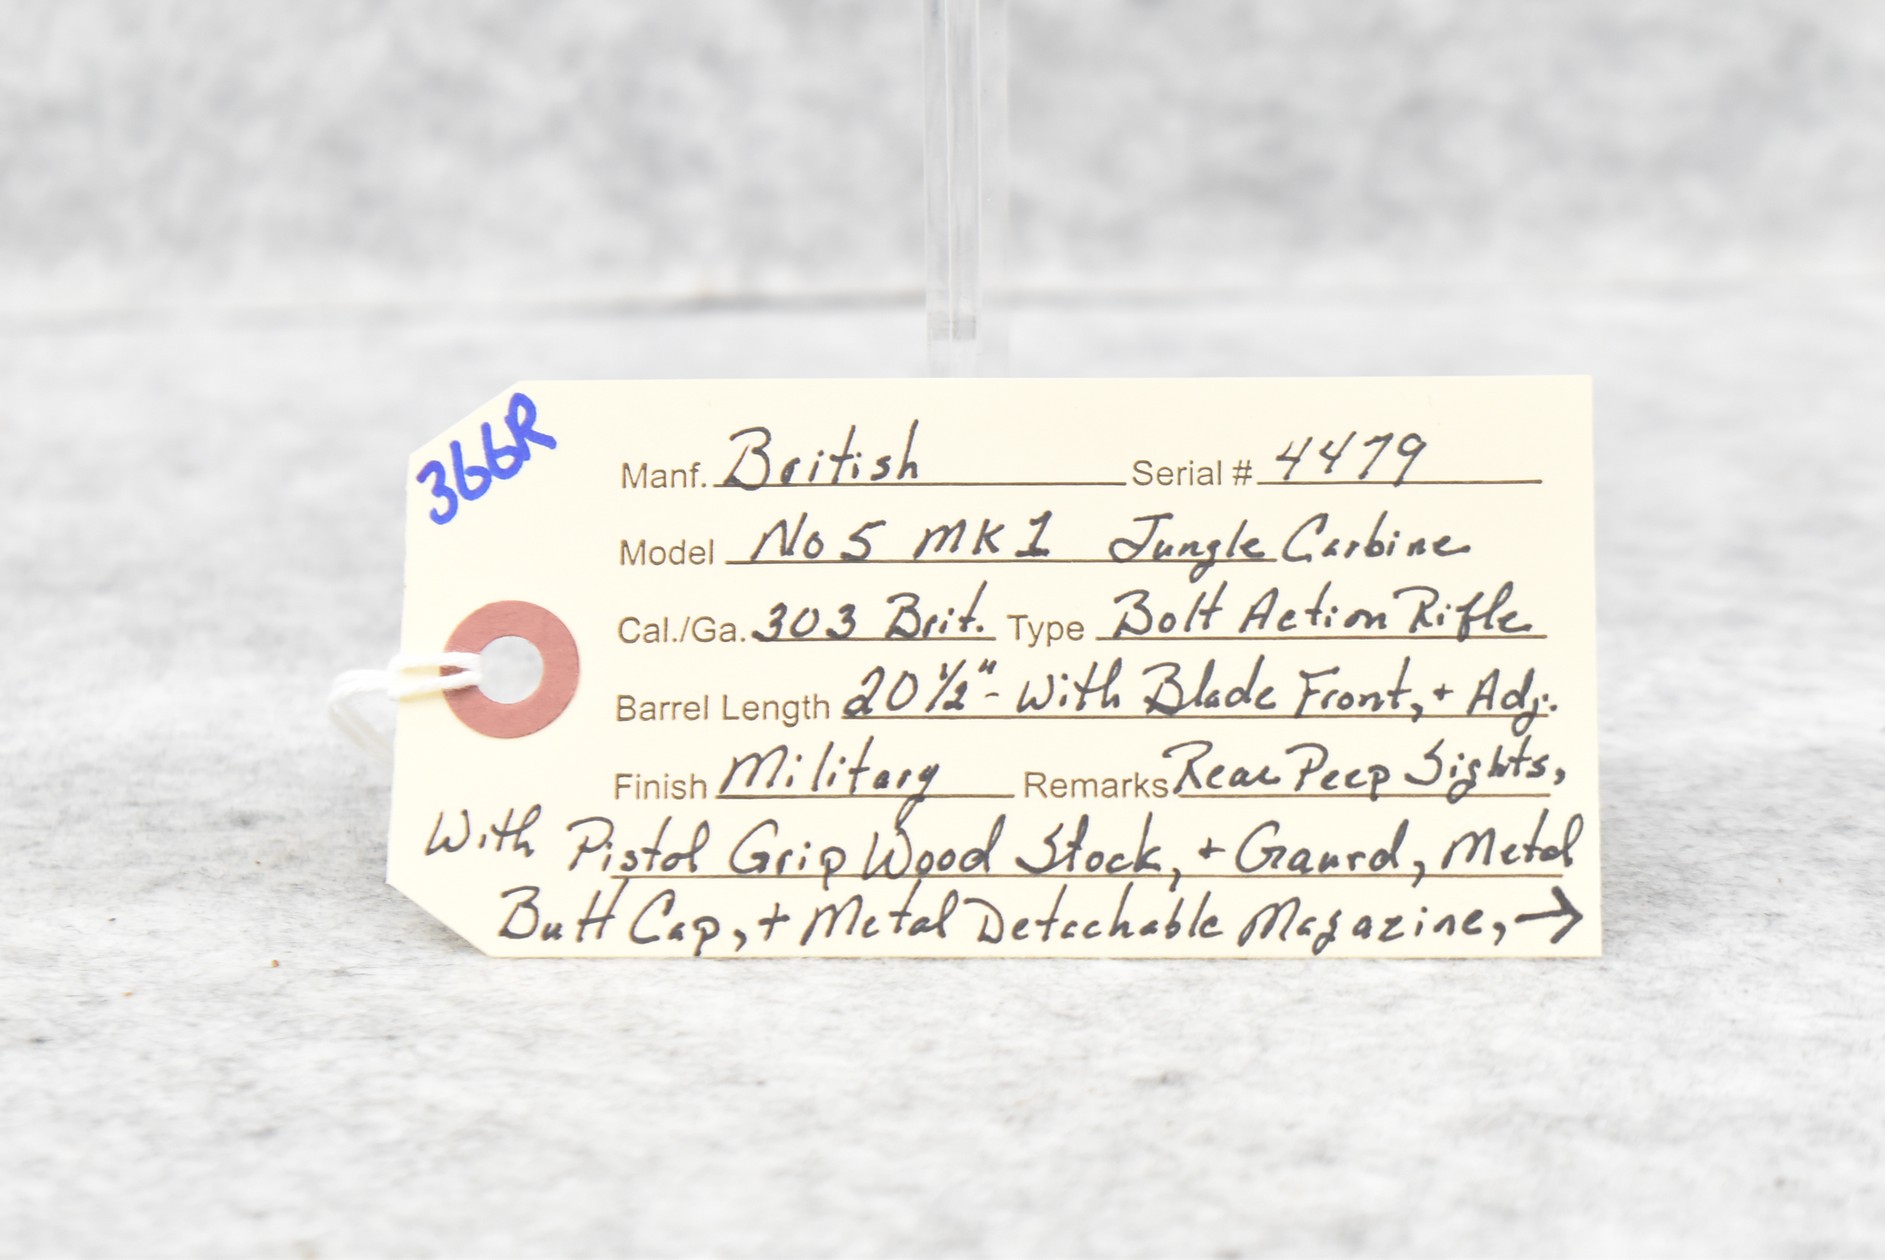 366R
Manf. British Serial # 4479
Model No 5 MK 1 Jungle Carbine
Cal./Ga. 303 Brit. Type Bolt Action Rifle
Barrel Length 20 1/2" - With Blade Front, + Adj.
Finish Military Remarks Rear Peep Sights,
With Pistol Grip Wood Stock, + Gaurd, Metal
Butt Cap, + Metal Detachable Magazine, →